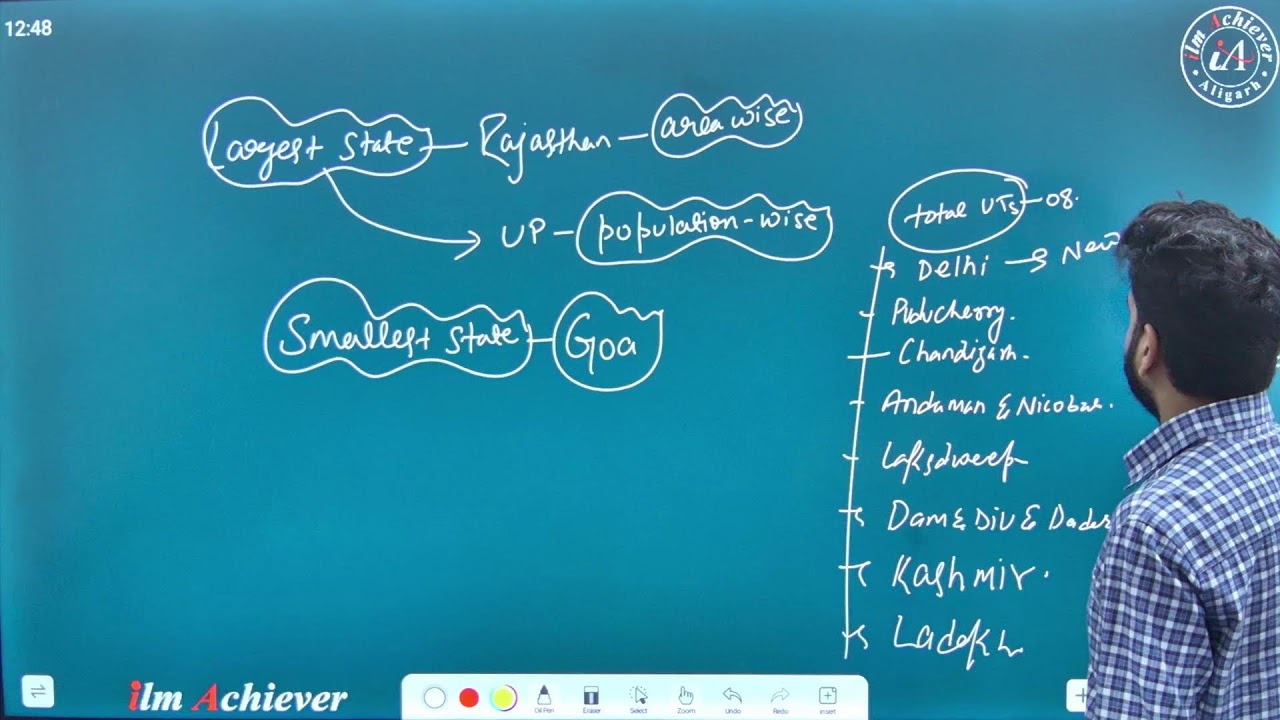 12:48
ilm Achiever
iA
Aligarh
Largest State - Rajasthan - area wise
UP - population-wise
Smallest State - Goa
total UTs - 08.
Delhi → New
Puducherry.
Chandigarh.
Andaman & Nicobar.
Dam & Div & Dadar
Kashmir.
Ladakh
ilm Achiever
Oil Pen Eraser Select Zoom Undo Redo Insert